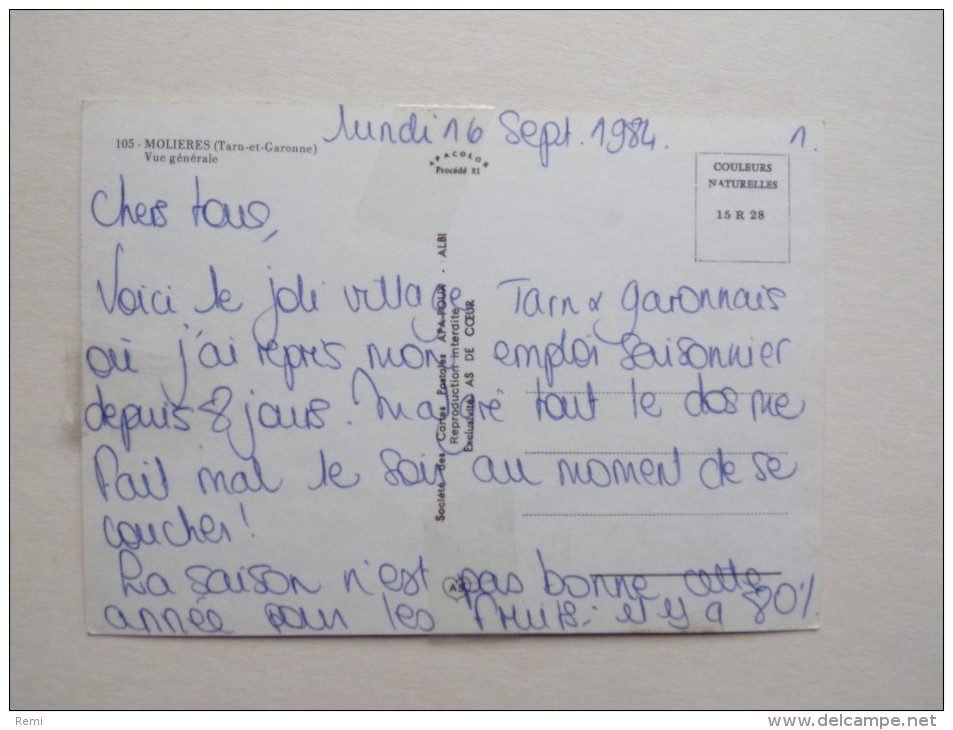 lundi 16 Sept. 1984. 1.
105 - MOLIERES (Tarn-et-Garonne)
Vue générale
APACOLOR
Procédé 81
COULEURS
NATURELLES
15 R 28
Chers tous,
Voici le joli village Tarn & garonnais
où j'ai repris mon emploi saisonnier
depuis 8 jours. Malgré tout le dos me
fait mal le soir au moment de se
coucher!
La saison n'est pas bonne cette
année pour les fruits: il y a 80%
Société des Cartes Postales APA-POUX - ALBI
Reproduction interdite
Exclusivité AS DE CŒUR
AS
Remi
www.delcampe.net